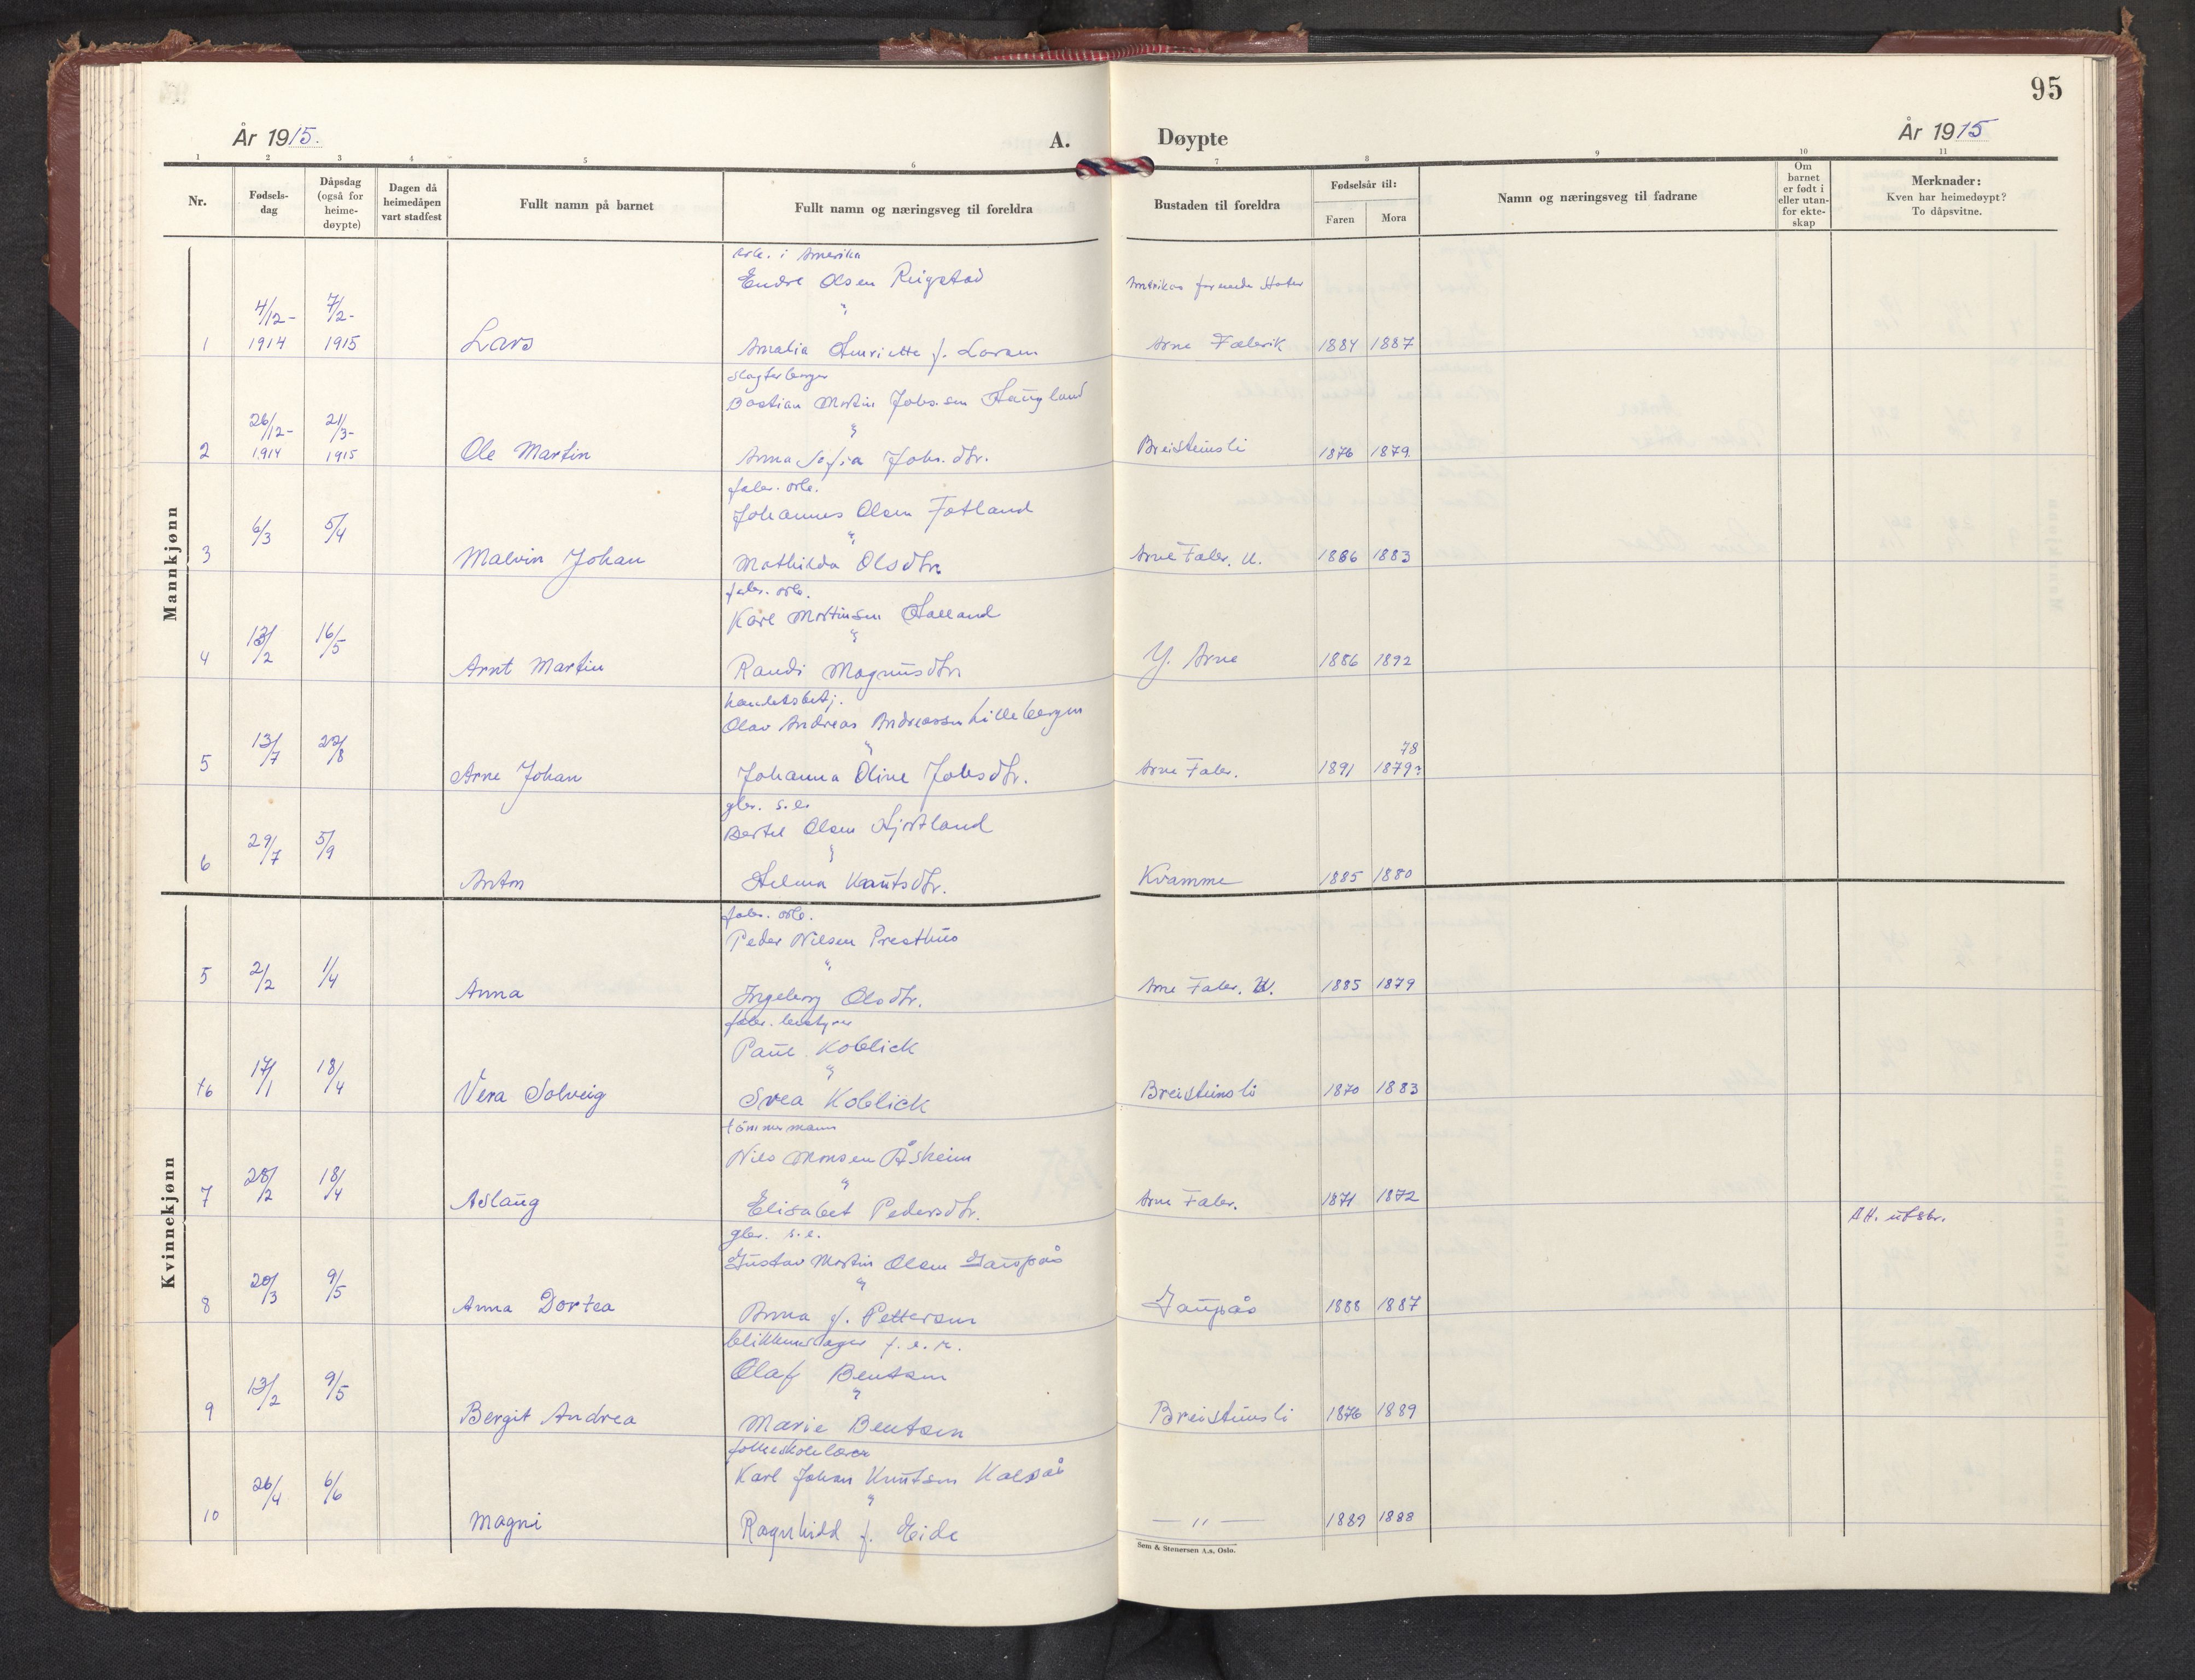 95
År 1915.
A.
Døypte
År 1915
1 2 3 4 5 6 7 8 9 10 11
Nr.
Fødsels-
dag
Dåpsdag
(også for
heime-
døypte)
Dagen då
heimedåpen
vart stadfest
Fullt namn på barnet
Fullt namn og næringsveg til foreldra
Bustaden til foreldra
Fødselsår til:
Faren Mora
Namn og næringsveg til fadrane
Om
barnet
er født i
eller utan-
for ekte-
skap
Merknader:
Kven har heimedøypt?
To dåpsvitne.
Mannkjønn
arb. i Amerika
Endre Olsen Reigstad
4/12- 7/2- "
1 1914 1915 Lars Amalia Henriette f. Larsen Arne Fabrik 1884 1887
slagterborger
Bastian Martin Johs.sen Haugland
26/12- 21/3- "
2 1914 1915 Ole Martin Anna Sofia Johs. dtr. Breisteinsli 1876 1879
fabr. arb.
Johannes Olsen Fotland
6/3 5/4 "
3 Malvin Johan Mathilda Olsdtr. Arne Fabr. U. 1886 1883
fabr. arb.
Karl Martinsen Haaland
13/2 16/5 "
4 Arnt Martin Randi Magnusdtr. Y. Arne 1886 1892
handelsbetj.
Olav Andreas Andreassen Lillebergen
13/7 22/8 " 78
5 Arne Johan Johanna Oline Johsdtr. Arne Fabr. 1891 1879?
gbr. s.e.
Bertel Olsen Hjortland
29/7 5/9 "
6 Anton Helma Knutsdtr. Kvamme 1885 1880
Kvinnekjønn
fabr. arb.
Peder Nilsen Presthus
2/2 1/4 "
5 Anna Ingeborg Olsdtr. Arne Fabr. U. 1885 1879
fabr. bestyrer
Paul Koblick
17/1 18/4 "
+6 Vera Solveig Svea Koblick Breisteinsli 1870 1883
tömmermann
Nils Monsen Åsheim
28/2 18/4 "
7 Aslaug Elisabet Pedersdtr. Arne Fabr. 1871 1872
gbr. s.e. AH. utskr.
Gustav Martin Olsen Gaupås
20/3 9/5 "
8 Anna Dortea Anna f. Pettersen Gaupås 1888 1887
blikkenslager f.e.r.
Olaf Bentsen
13/2 9/5 "
9 Bergit Andrea Marie Bentsen Breisteinsli 1876 1889
folkeskolelærer
Karl Johan Knutsen Kalsås
26/4 6/6 "
10 Magni Ragnhild f. Eide — " — 1889 1888
Sem & Stenersen A.s. Oslo.